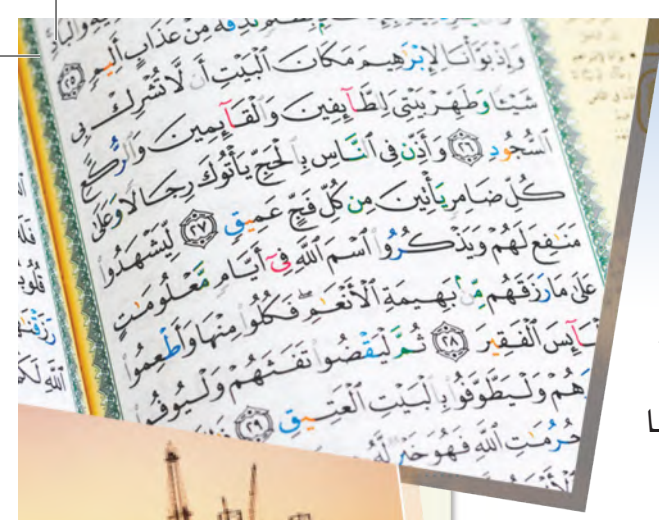 نُذِقْهُ مِنْ عَذَابٍ أَلِيمٍ ٢٥
وَإِذْ بَوَّأْنَا لِإِبْرَٰهِيمَ مَكَانَ ٱلْبَيْتِ أَن لَّا تُشْرِكْ بِى
شَيْـًٔا وَطَهِّرْ بَيْتِىَ لِلطَّآئِفِينَ وَٱلْقَآئِمِينَ وَٱلرُّكَّعِ
ٱلسُّجُودِ ٢٦ وَأَذِّن فِى ٱلنَّاسِ بِٱلْحَجِّ يَأْتُوكَ رِجَالًا وَعَلَىٰ
كُلِّ ضَامِرٍ يَأْتِينَ مِن كُلِّ فَجٍّ عَمِيقٍ ٢٧ لِّيَشْهَدُوا۟
مَنَٰفِعَ لَهُمْ وَيَذْكُرُوا۟ ٱسْمَ ٱللَّهِ فِىٓ أَيَّامٍ مَّعْلُومَٰتٍ
عَلَىٰ مَا رَزَقَهُم مِّنۢ بَهِيمَةِ ٱلْأَنْعَٰمِ ۖ فَكُلُوا۟ مِنْهَا وَأَطْعِمُوا۟
ٱلْبَآئِسَ ٱلْفَقِيرَ ٢٨ ثُمَّ لْيَقْضُوا۟ تَفَثَهُمْ وَلْيُوفُوا۟
هُمْ وَلْيَطَّوَّفُوا۟ بِٱلْبَيْتِ ٱلْعَتِيقِ ٢٩
حُرُمَٰتِ ٱللَّهِ فَهُوَ خَيْرٌ لَّهُۥ